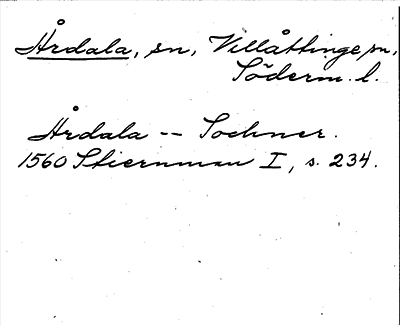 Årdala, sn, Villåttinge sn,
Söderm. l.
Årdala -- Sochner.
1560 Stiernman I, s. 234.